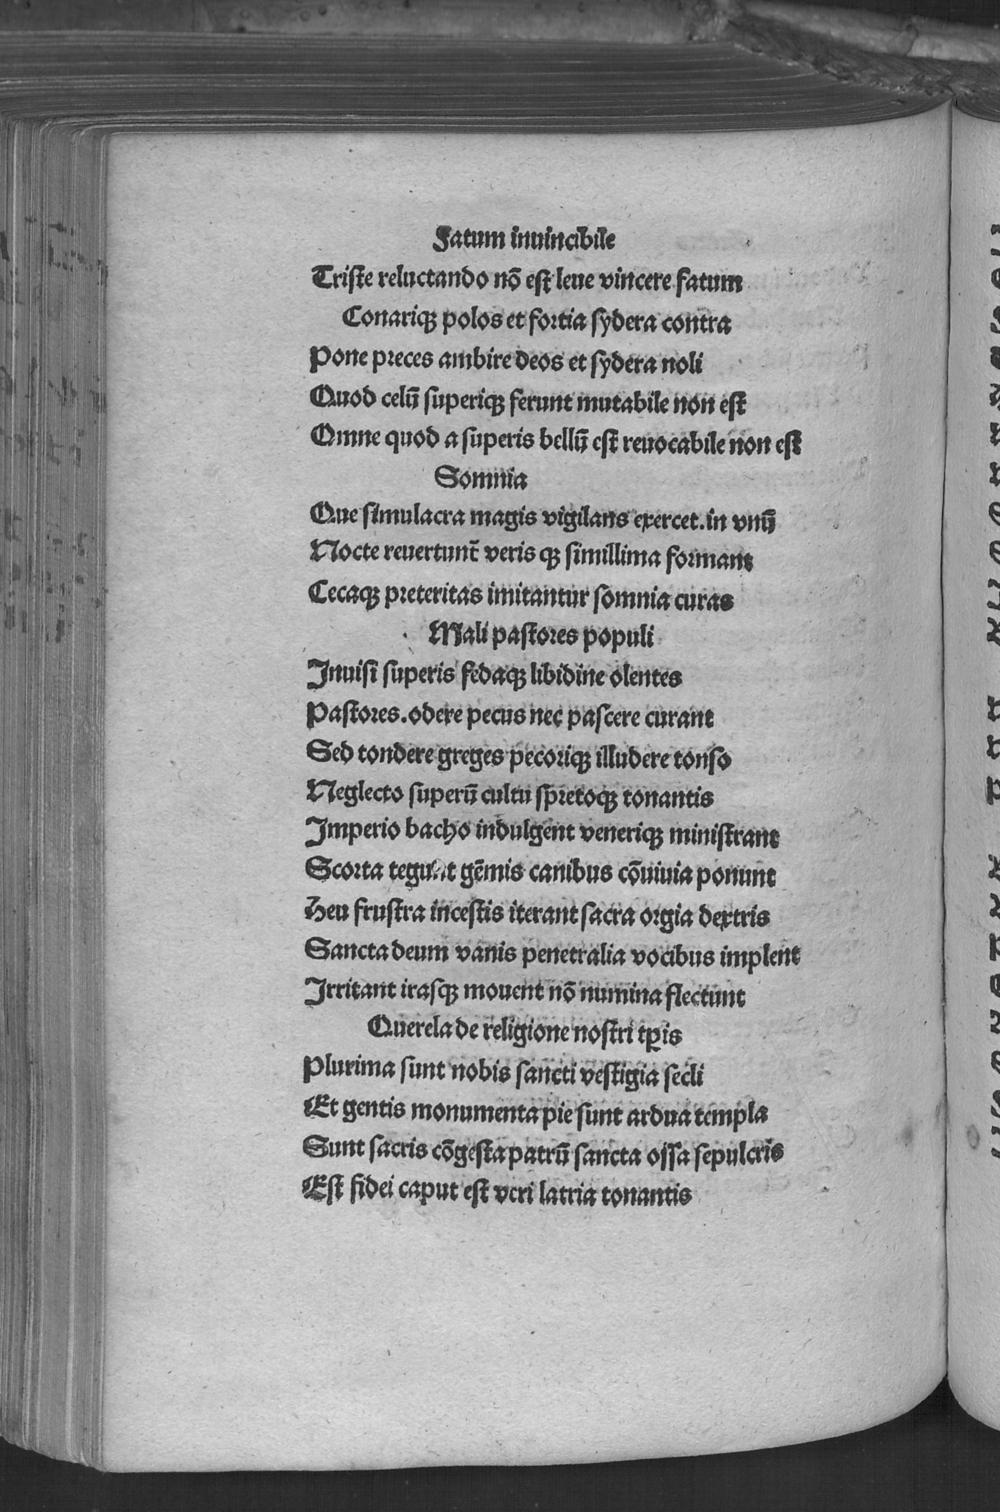 Fatum inuincibile
Triste reluctando nō est leue vincere fatum
Conariqꝫ polos et fortia sydera contra
Pone preces ambire deos et sydera noli
Quod celū superiqꝫ ferunt mutabile non est
Omne quod a superis bellū est reuocabile non est
Somnia
Que simulacra magis vigilans exercet. in vnū
Nocte reuertunt̄ veris qꝫ simillima formant
Cecaqꝫ preteritas imitantur somnia curas
Mali pastores populi
Inuisi superis fedaqꝫ libidine olentes
Pastores. odere pecus nec pascere curant
Sed tondere greges pecoriqꝫ illudere tonso
Neglecto superū cultu spretoqꝫ tonantis
Imperio bacho indulgent veneriqꝫ ministrant
Scorta tegunt gēmis canibus cōuiuia ponunt
Heu frustra incestis iterant sacra orgia dextris
Sancta deum vanis penetralia vocibus implent
Irritant irasqꝫ mouent nō numina flectunt
Querela de religione nostri tꝑis
Plurima sunt nobis sancti vestigia secli
Et gentis monumenta pie sunt ardua templa
Sunt sacris cōgesta patrū sancta ossa sepulcris
Est fidei caput est veri latria tonantis